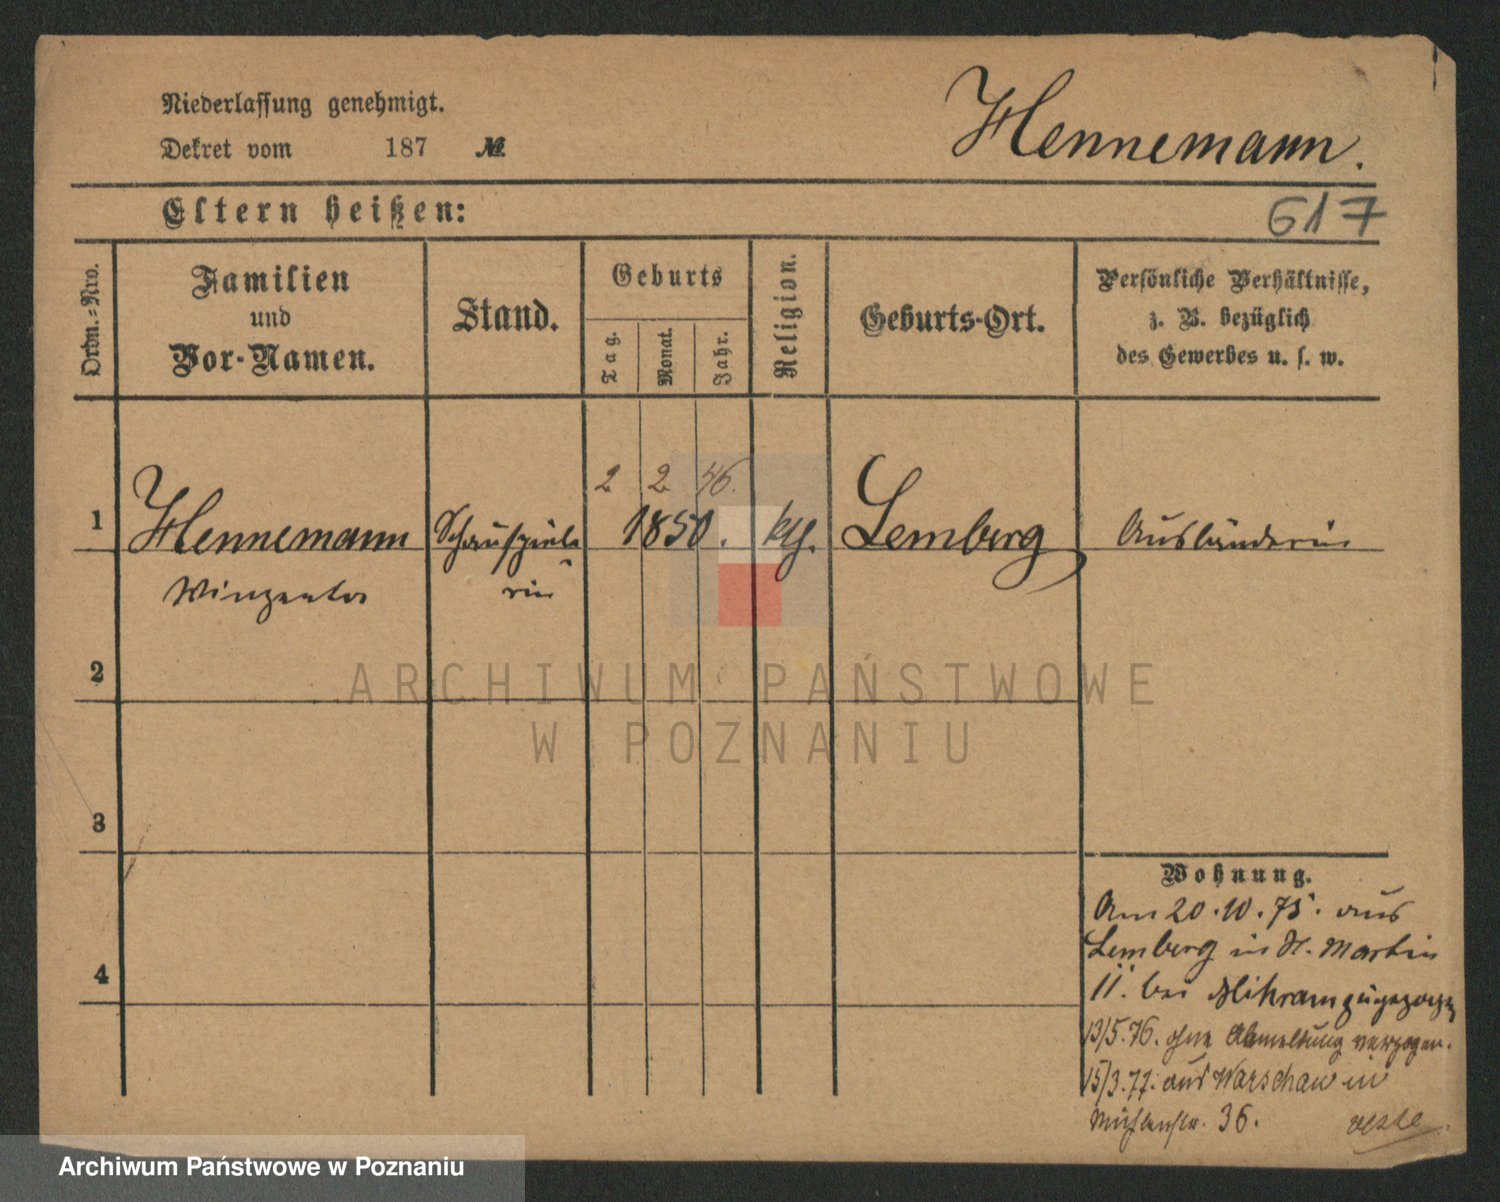 Niederlassung genehmigt.
Dekret vom 187 №
Hennemann.
Eltern heißen:
617
Ordn.-Nro.
Familien
und
Vor-Namen.
Stand.
Geburts
Tag.
Monat.
Jahr.
Religion.
Geburts-Ort.
Persönliche Verhältnisse,
z. B. bezüglich
des Gewerbes u. s. w.
2 2 46.
1 Hennemann Schauspiele 1850. kth. Lemberg Ausländerin
rin
2
ARCHIWUM PAŃSTWOWE
W POZNANIU
3
4
Wohnung.
Am 20.10.75. aus
Lemberg in St. Martin
11. bei zugezogen
13/5.76. ohne Abmeldung verzogen.
15/3.77. aus Warschau in
Mühlenstr. 36.
Archiwum Państwowe w Poznaniu